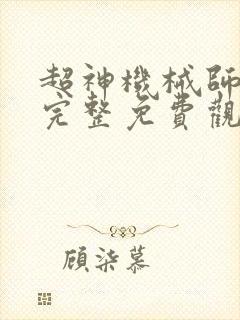 超神機械師
完整免費觀
顾柒慕